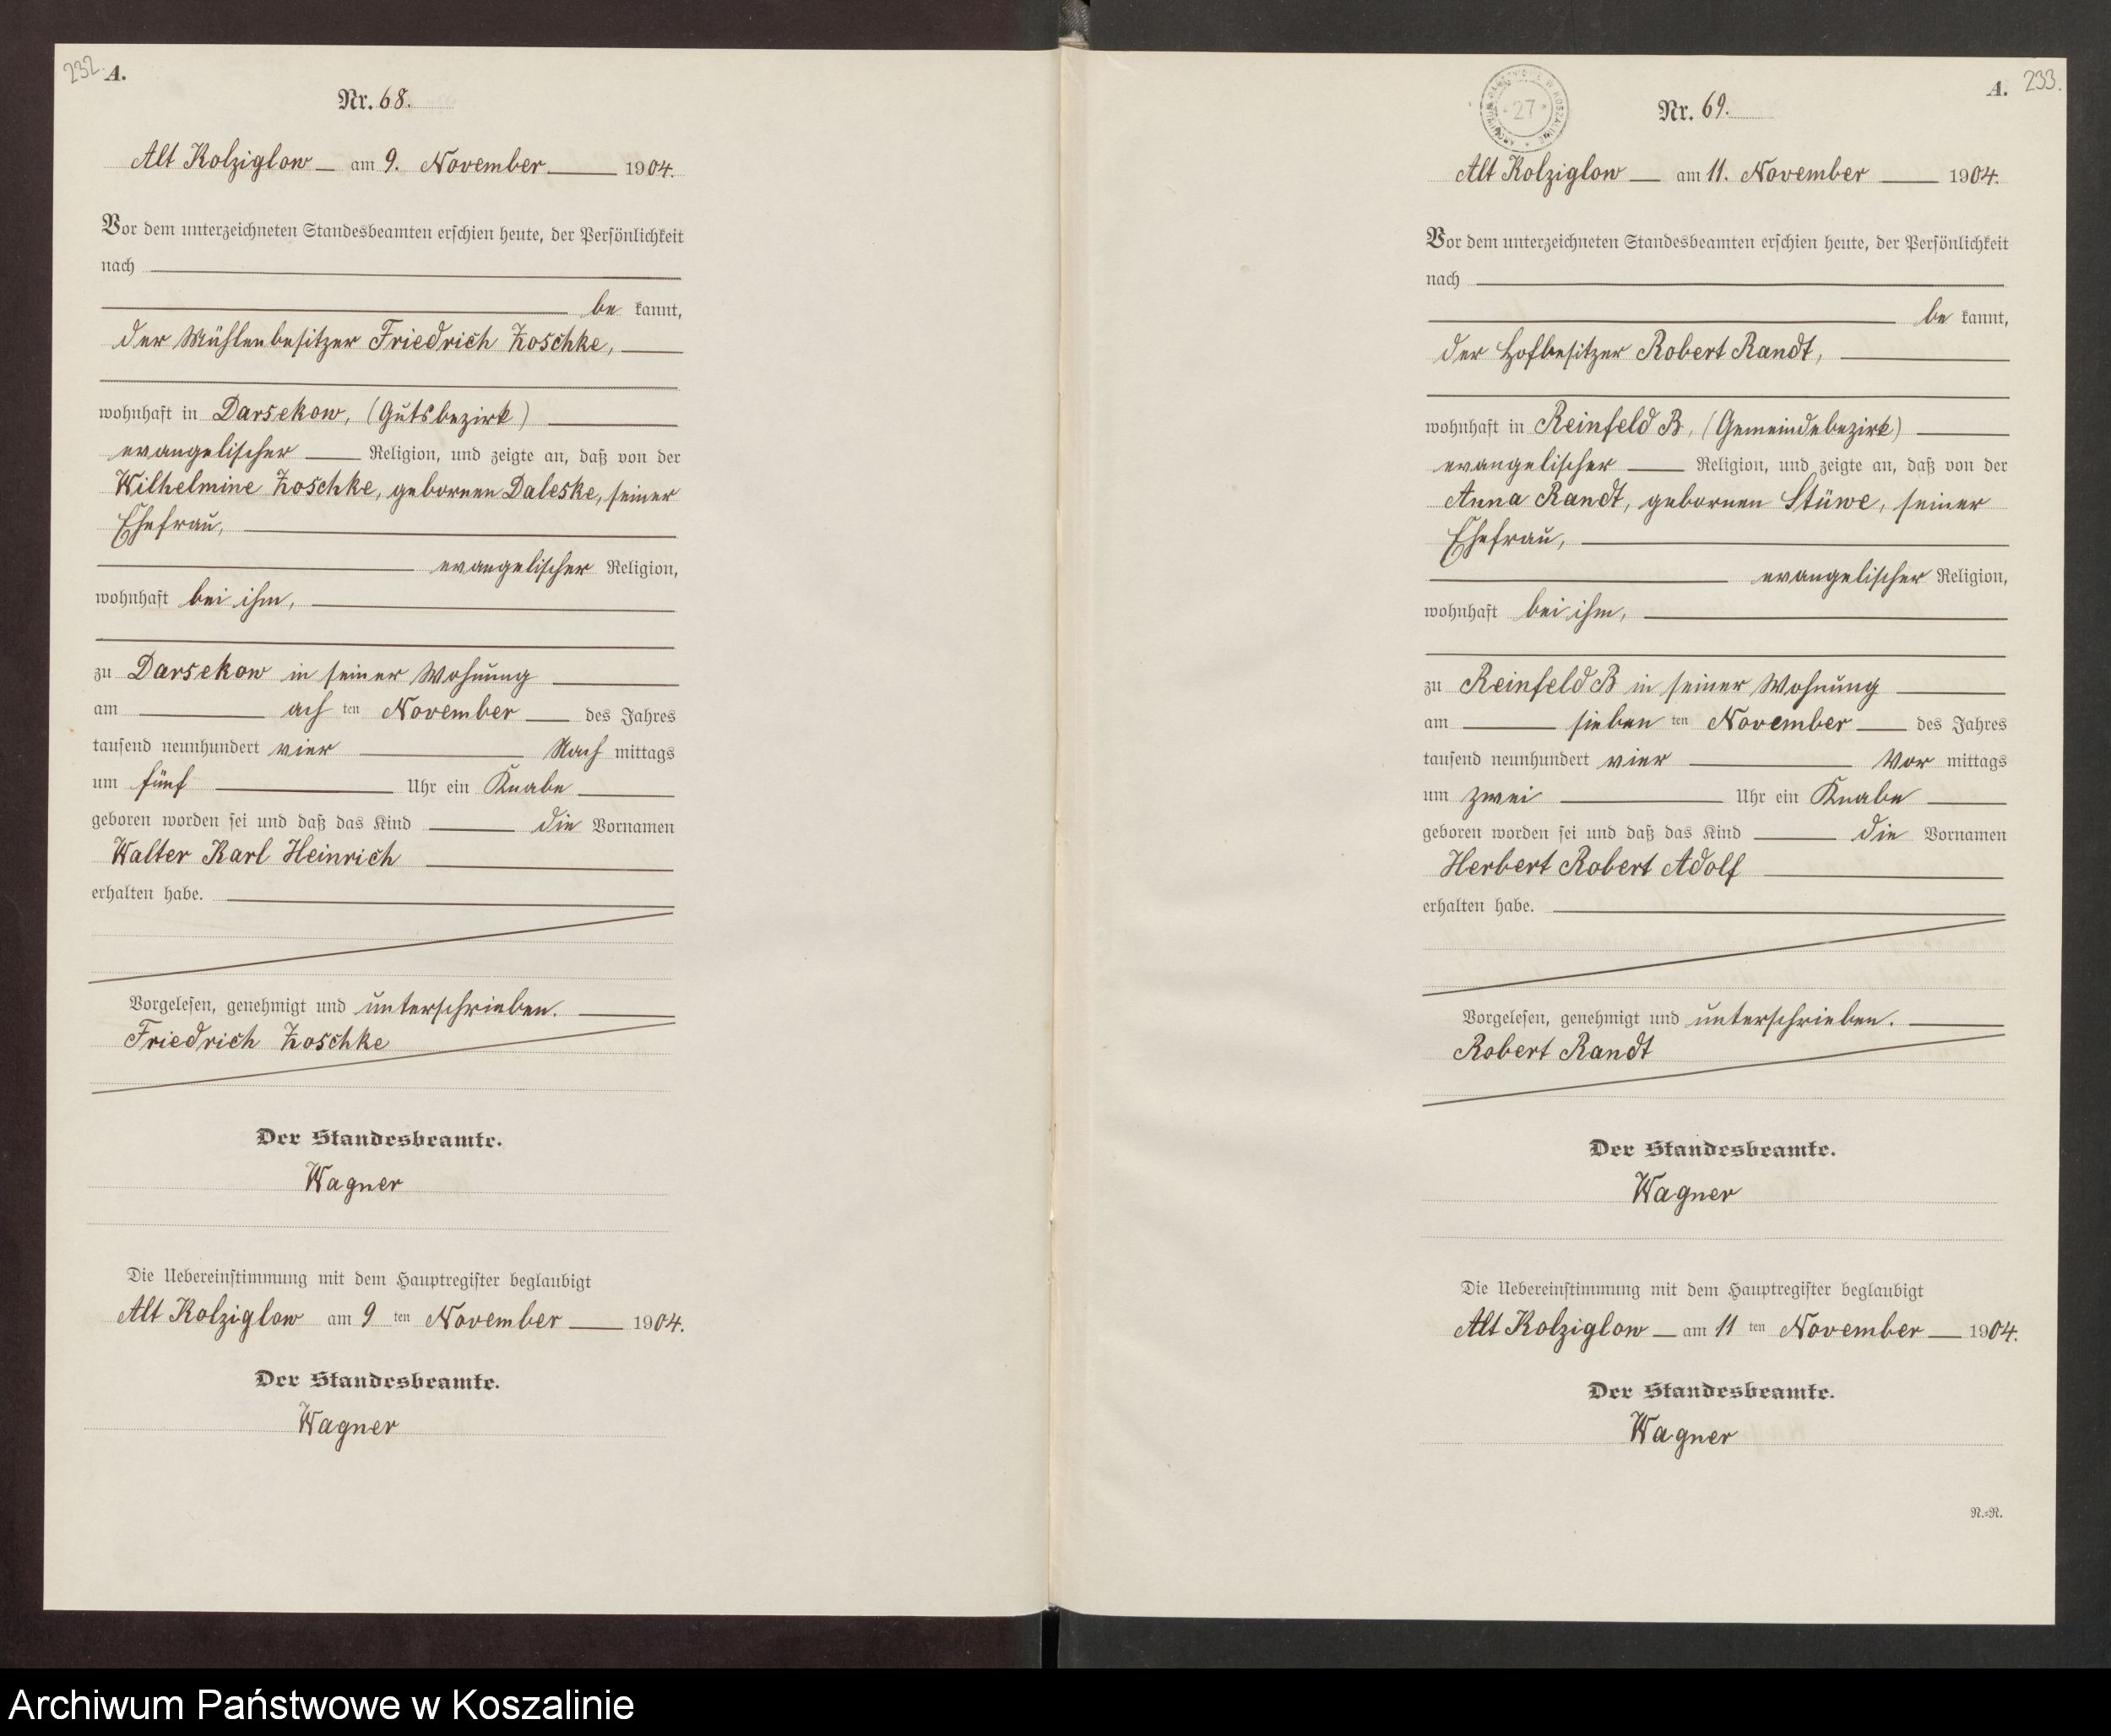 232. A.
Nr. 68.
Alt Kolziglow am 9. November 1904.
Vor dem unterzeichneten Standesbeamten erschien heute, der Persönlichkeit
nach
be kannt,
der Mühlenbesitzer Friedrich Zoschke,
wohnhaft in Darsekow, (Gutsbezirk)
evangelischer Religion, und zeigte an, daß von der
Wilhelmine Zoschke, gebornen Daleske, seiner
Ehefrau,
evangelischer Religion,
wohnhaft bei ihm,
zu Darsekow in seiner Wohnung
am ach ten November des Jahres
tausend neunhundert vier Nach mittags
um fünf Uhr ein Knabe
geboren worden sei und daß das Kind die Vornamen
Walter Karl Heinrich
erhalten habe.
Vorgelesen, genehmigt und unterschrieben.
Friedrich Zoschke
Der Standesbeamte.
Wagner
Die Uebereinstimmung mit dem Hauptregister beglaubigt
Alt Kolziglow am 9 ten November 1904.
Der Standesbeamte.
Wagner
A. 233.
ARCHIWUM PAŃSTWOWE W KOSZALINIE
27
Nr. 69.
Alt Kolziglow am 11. November 1904.
Vor dem unterzeichneten Standesbeamten erschien heute, der Persönlichkeit
nach
be kannt,
der Hofbesitzer Robert Randt,
wohnhaft in Reinfeld B, (Gemeindebezirk)
evangelischer Religion, und zeigte an, daß von der
Anna Randt, gebornen Stüwe, seiner
Ehefrau,
evangelischer Religion,
wohnhaft bei ihm,
zu Reinfeld B in seiner Wohnung
am sieben ten November des Jahres
tausend neunhundert vier Vor mittags
um zwei Uhr ein Knabe
geboren worden sei und daß das Kind die Vornamen
Herbert Robert Adolf
erhalten habe.
Vorgelesen, genehmigt und unterschrieben.
Robert Randt
Der Standesbeamte.
Wagner
Die Uebereinstimmung mit dem Hauptregister beglaubigt
Alt Kolziglow am 11 ten November 1904.
Der Standesbeamte.
Wagner
R.=R.
Archiwum Państwowe w Koszalinie